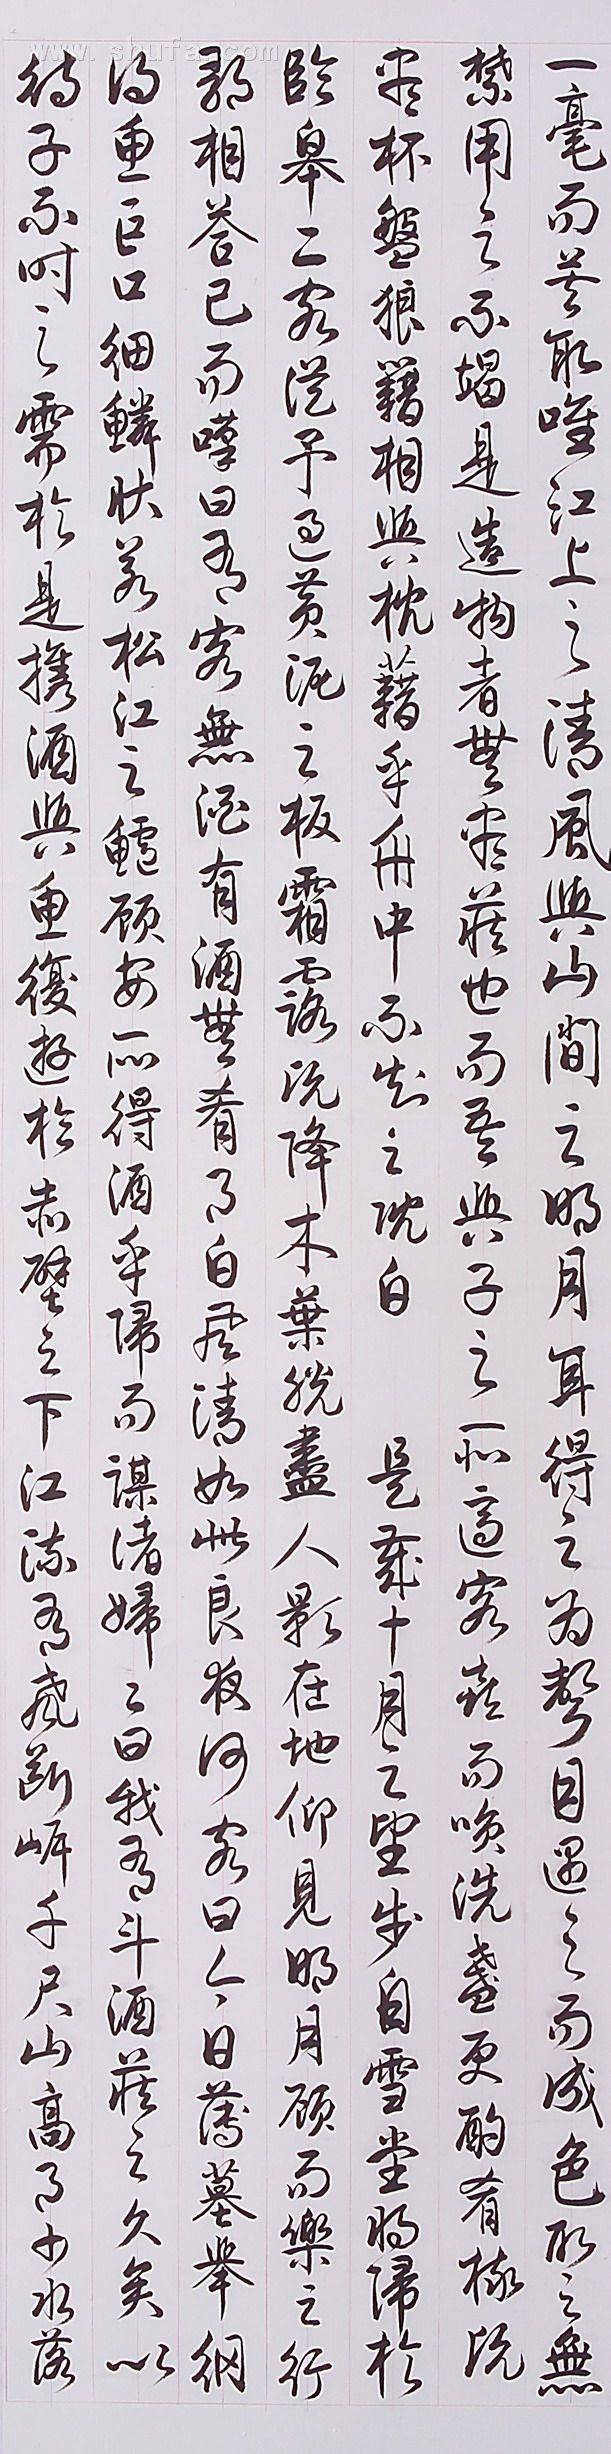 www.shufa.com
一毫而莫取唯江上之清風與山間之明月耳得之為聲目遇之而成色取之無
禁用之不竭是造物者無盡藏也而吾與子之所適客喜而笑洗盞更酌肴核既
盡杯盤狼籍相與枕藉乎舟中不知之既白　是歲十月之望步自雪堂將歸於
臨皋二客從予過黃泥之板霜露既降木葉脫盡人影在地仰見明月顧而樂之行
歌相答已而嘆曰有客無酒有酒無肴月白風清如此良夜何客曰今日薄暮舉網
得魚巨口細鱗狀若松江之鱸顧安所得酒乎歸而謀諸婦々曰我有斗酒藏之久矣以
待子不時之需於是攜酒與魚復遊於赤壁之下江流有聲斷岸千尺山高月小水落